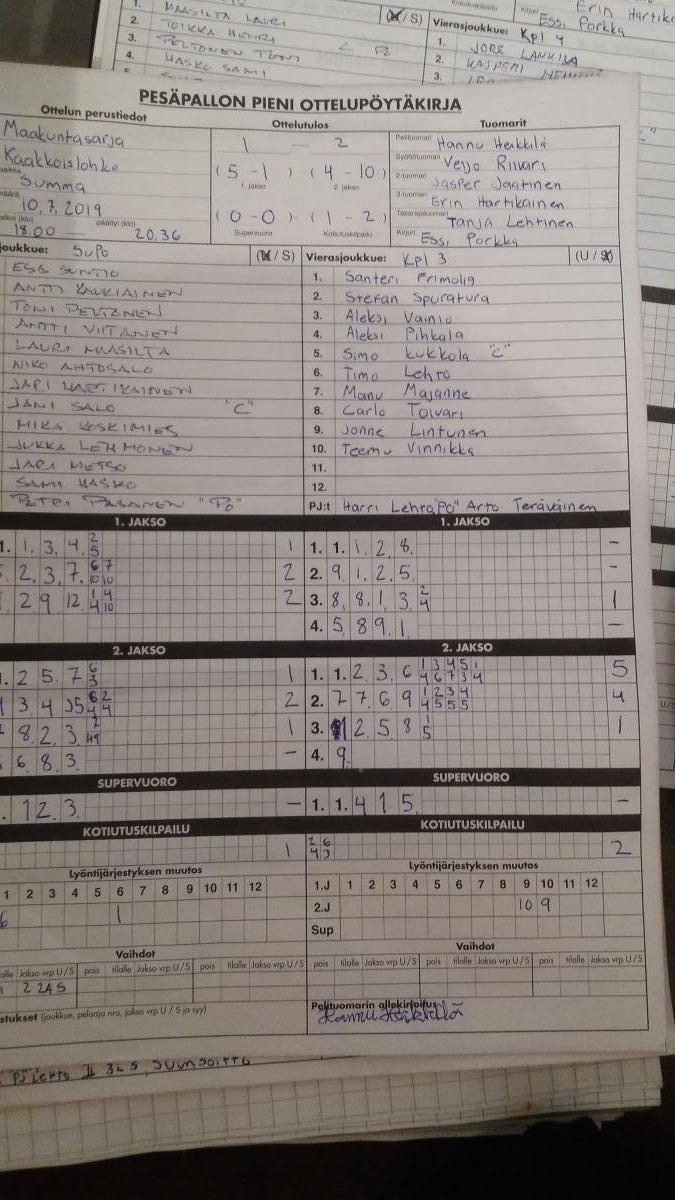 1. MAASILTA LAURI (X/S)
2. TOIKKA HENRI
3. PELTONEN TONI
4. HASKO SAMI
Erin Hartika
Essi Porkka
Vierasjoukkue: Kpl 4
1. JORE LANKILA
2. KASPERI
3.
PESÄPALLON PIENI OTTELUPÖYTÄKIRJA
Ottelun perustiedot Ottelutulos Tuomarit
Maakuntasarja 1 — 2 Pelituomari Hannu Heikkilä
Kaakkoislohko (5-1) (4-10) Syöttötuomari Veijo Riivari
Summa 1. jakso 2. jakso 2-tuomari Jasper Jaatinen
10.7.2019 3-tuomari Erin Hartikainen
18.00 päättyi (klo) 20.36 (0-0) (1-2) Takarajatuomari Tanja Lehtinen
Supervuoro Kotiutuskilpailu Kirjuri Essi Porkka
joukkue: SuPo (X/S) Vierasjoukkue: Kpl 3 (U/X)
ESA SUNTIO 1. Santeri Frimolig
ANTTI KAUKIAINEN 2. Stefan Spuratura
TONI PELTONEN 3. Aleksi Vainio
ANTTI VIITANEN 4. Aleksi Pihkala
LAURI MAASILTA 5. Simo Kukkola "C"
NIKO AHTOSALO 6. Timo Lehto
JARI HARTIKAINEN 7. Manu Majanne
JANI SALO "C" 8. Carlo Toivari
MIKA KOSKIMIES 9. Jonne Lintunen
JUKKA LEHMONEN 10. Teemu Vinnikka
JARI METSO 11.
SAMI HASKO 12.
PETRI PASANEN "PJ" PJ:t Harri Lehto "PJ" Arto Teräväinen
1. JAKSO 1. JAKSO
1. 1. 3. 4. 2 5 1 1. 1. 1. 2. 8. –
2. 3. 7. 6 7 10 10 2 2. 9. 1. 2. 5. –
2 9 12 1 4 4 10 2 3. 8. 8. 1. 3. 2 4 1
4. 5 8 9. 1. –
2. JAKSO 2. JAKSO
2 5. 7 6 3 1 1. 1. 2 3. 6 1 3 4 5 1 4 6 7 3 4 5
3 4 5 6 2 4 4 2 2. 7 7 6 9 1 2 3 4 4 5 5 5 4
8 2. 3 1 3. 2 5 8 1 5 1
6 8 3. – 4. 9.
SUPERVUORO SUPERVUORO
1 2. 3. – 1. 1. 4 1 5. –
KOTIUTUSKILPAILU KOTIUTUSKILPAILU
1 2 6 4 3 2
Lyöntijärjestyksen muutos Lyöntijärjestyksen muutos
1 2 3 4 5 6 7 8 9 10 11 12 1.J 1 2 3 4 5 6 7 8 9 10 11 12
6 1 2.J 10 9
Sup
Vaihdot Vaihdot
Jakso vrp U/S pois tilalle Jakso vrp U/S pois tilalle Jakso vrp U/S pois tilalle Jakso vrp U/S pois tilalle Jakso vrp U/S pois tilalle Jakso vrp U/S
2 2A S
(joukkue, pelaaja nro, jakso vrp U / S ja syy) Pelituomarin allekirjoitus
Hannu Heikkilä
PJ LEHTO II 3L S, SUUNSOITTO